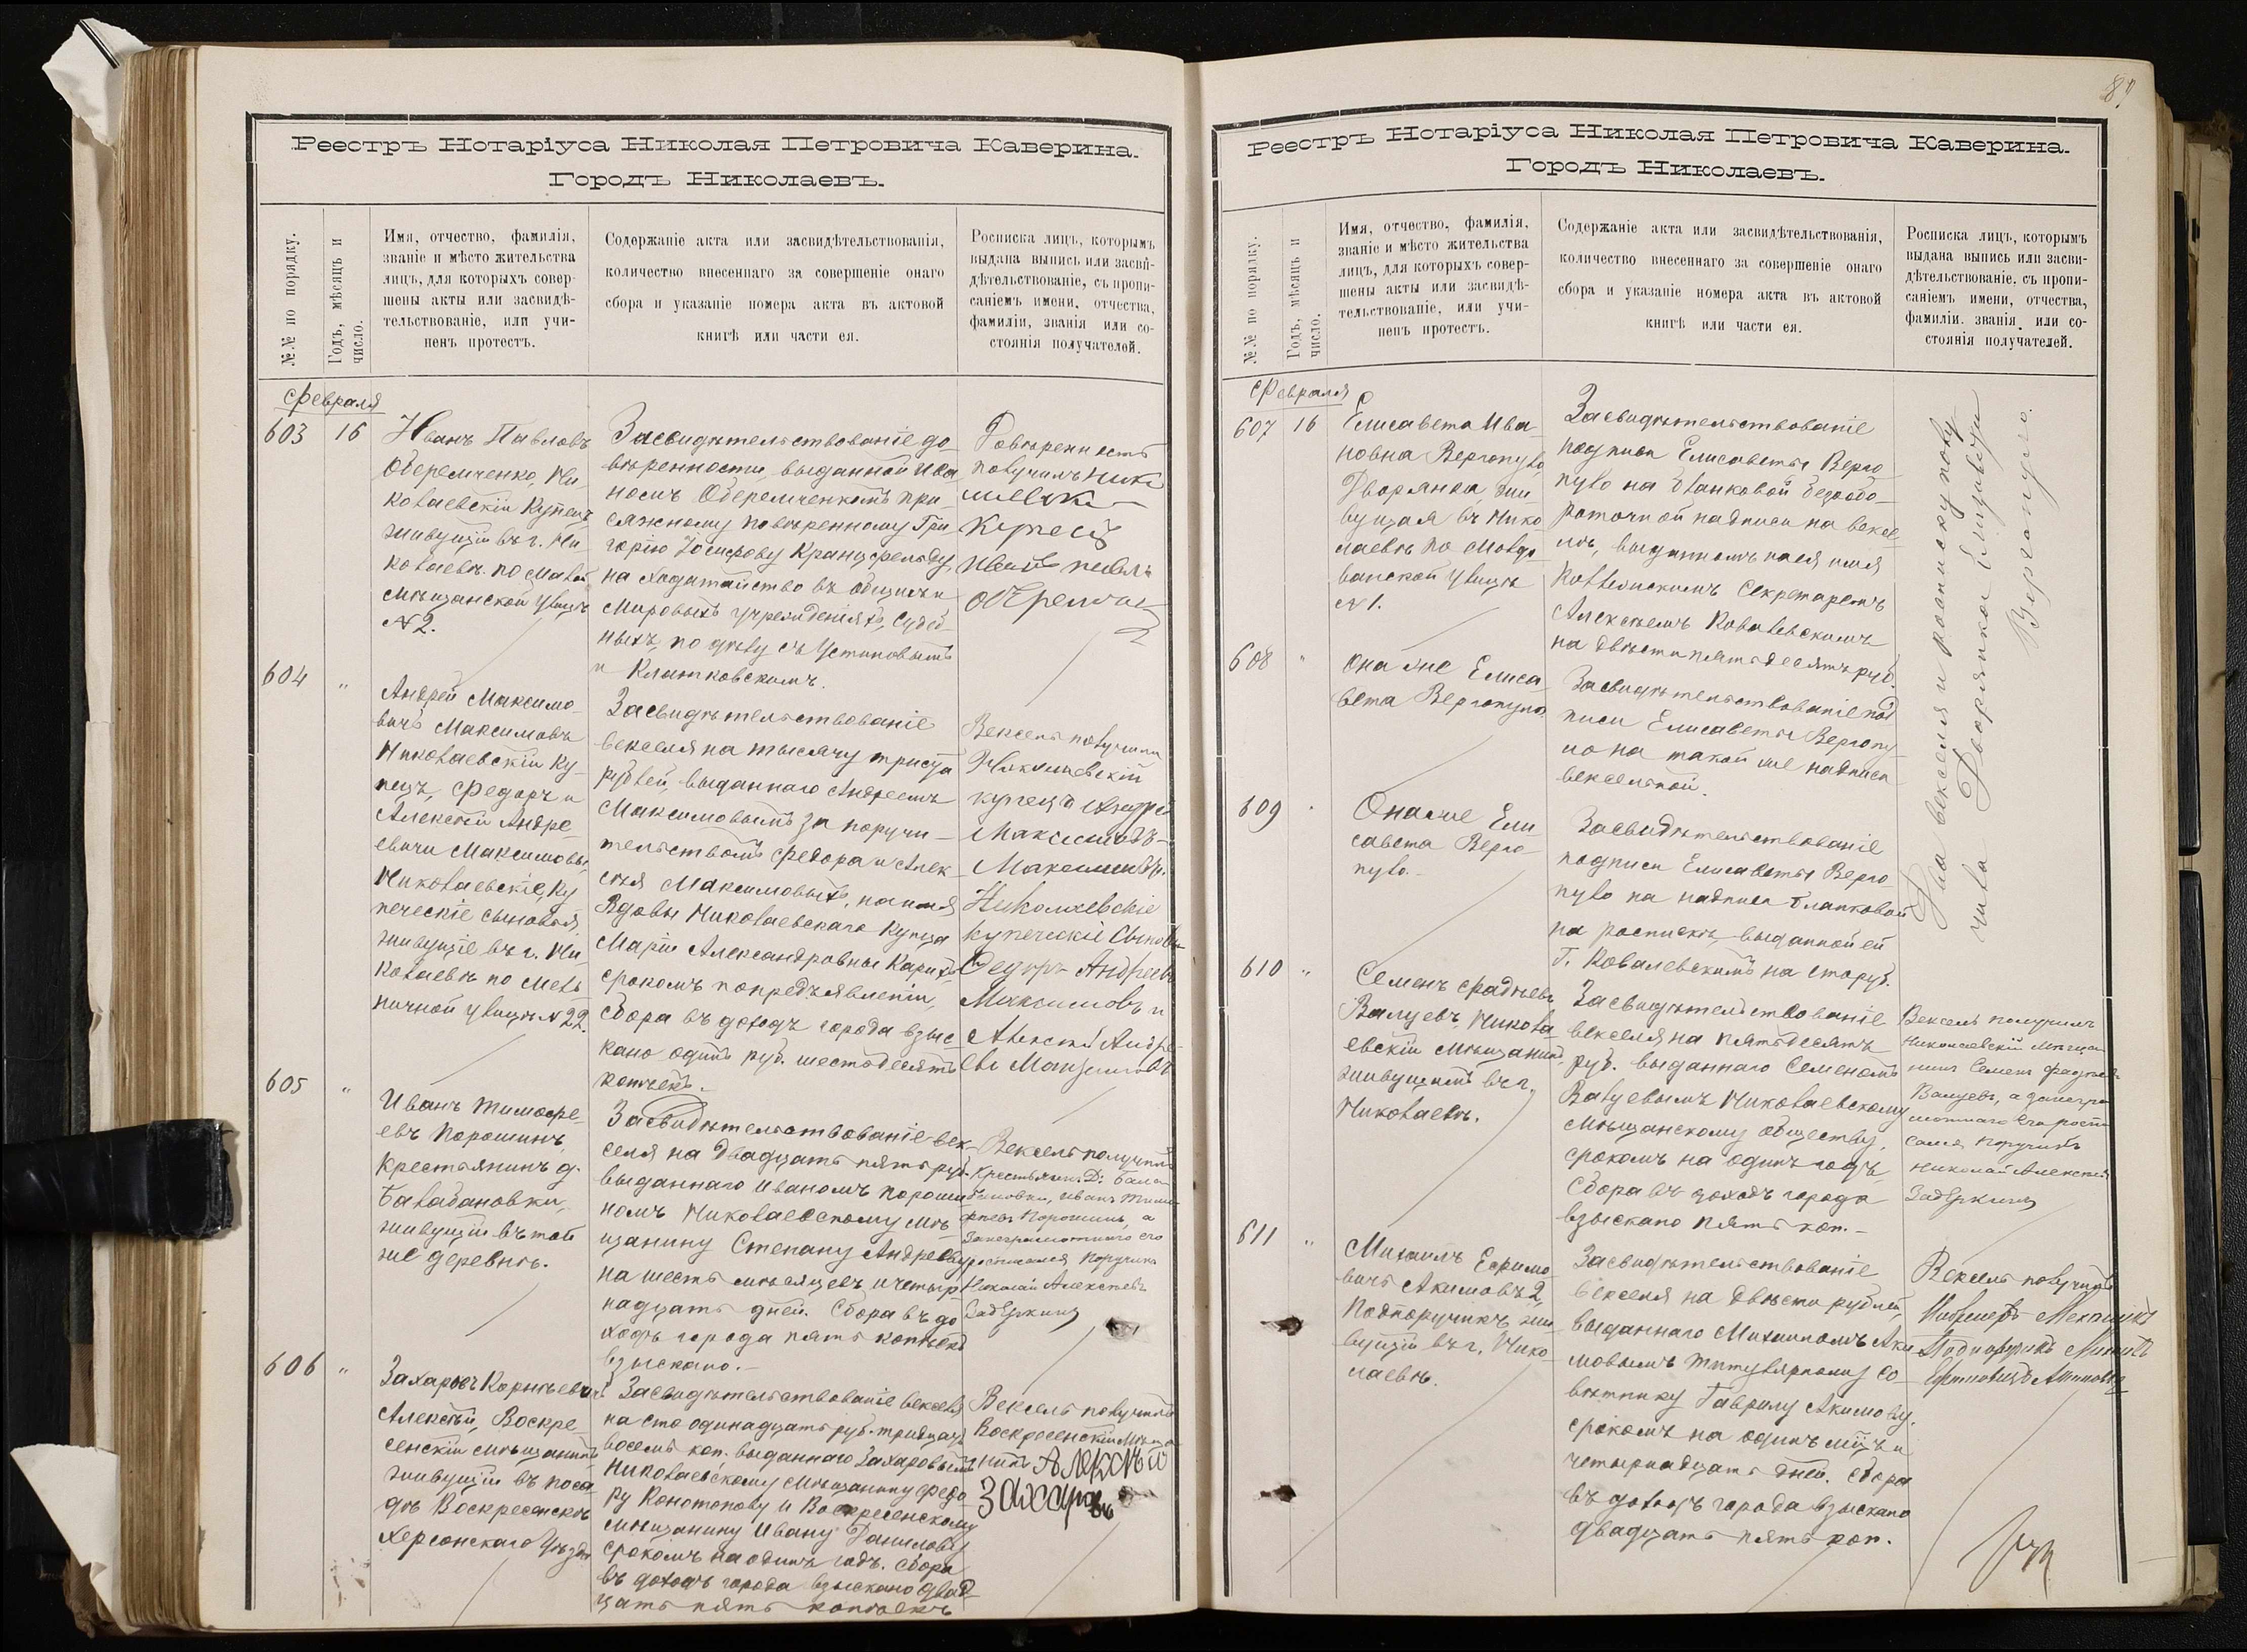 Реестръ Нотаріуса Николая Петровича Каверина.
Городъ Николаевъ.
№№ по порядку.
Годъ, мѣсяцъ и
число.
Имя, отчество, фамилія,
званіе и мѣсто жительства
лицъ, для которыхъ совер-
шены акты или засвидѣ-
тельствованіе, или учи-
ненъ протестъ.
Содержаніе акта или засвидѣтельствованія,
количество внесеннаго за совершеніе онаго
сбора и указаніе номера акта въ актовой
книгѣ или части ея.
Росписка лицъ, которымъ
выдана выпись или засви-
дѣтельствованіе, съ пропи-
саніемъ имени, отчества,
фамиліи, званія или со-
стоянія получателей.
Февраля
603 16
Иванъ Павловъ
Оберемченко, Ни-
колаевскій Купецъ
живущій въ г. Ни-
колаевѣ по Малой
Мѣщанской улицѣ
№ 2.
Засвидѣтельствованіе до-
вѣренности, выданной Ива
номъ Оберемченкомъ при-
сяжному повѣренному Гри
горію Іосифову Кранцфельду,
на ходатайство въ общихъ и
Мировыхъ учрежденіяхъ, Судеб-
ныхъ, по дѣлу съ Устиновымъ
и Клитковскимъ.
Довѣренность
получилъ
Купецъ
604 "
Андрей Максимо-
вичъ Максимовъ
Николаевскій Ку-
пецъ, Федоръ и
Алексѣй Андре-
евичи Максимовы,
Николаевскіе Ку
печескіе сыновья,
живущіе въ г. Ни-
колаевѣ по Мель
ничной улицѣ № 22.
Засвидѣтельствованіе
векселя на тысячу триста
рублей, выданнаго Андреемъ
Максимовымъ за поручи-
тельствомъ Федора и Алек
сѣя Максимовыхъ, на имя
Вдовы Николаевскаго Купца
Маріи Александровны
срокомъ по предъявленіи,
Сбора въ доходъ города взыс
кано одинъ руб. шестьдесятъ
копѣекъ.
Вексель получили
Николаевскій
купецъ Андрей
Максимовъ
Максимовъ.
Николаевскіе
купеческіе Сыновья
Федоръ Андреевъ
Максимовъ и
Алексѣй Андре-
евъ Максимовъ
605 "
Иванъ Тимофе-
евъ Порошинъ,
крестьянинъ д.
Балабановки,
живущій въ той
же деревнѣ.
Засвидѣтельствованіе век-
селя на двадцать пять руб.
выданнаго Иваномъ Пороши
номъ Николаевскому мѣ-
щанину Степану Андрееву
на шесть мѣсяцевъ и четыр
надцать дней. Сбора въ до
ходъ города пять копѣекъ
взыскано.-
Вексель получилъ
крестьянин. Д. Бала-
бановки, Иванъ Тимо
феевъ Порошинъ, а
за неграмотнаго его
росписался Поручикъ
Николай Алексѣевъ
606 "
Захаровъ Корнѣевичъ
Алексѣй, Воскре-
сенскій мѣщанинъ
живущій въ поса
дѣ Воскресенскѣ
Херсонскаго Уѣзда
Засвидѣтельствованіе векселя
на сто одинадцать руб. тридцать
восемь коп. выданнаго Захаровымъ
Николаевскому мѣщанину Федо
ру Конотопову и Воскресенскому
мѣщанину Ивану Данилову
срокомъ на одинъ годъ. Сбора
въ доходъ города взыскано двад-
цать пять копѣекъ
Вексель получилъ
Воскресенскій Мѣща
нинъ Алексѣй
Захаровъ
87
Реестръ Нотаріуса Николая Петровича Каверина.
Городъ Николаевъ.
№№ по порядку.
Годъ, мѣсяцъ и
число.
Имя, отчество, фамилія,
званіе и мѣсто жительства
лицъ, для которыхъ совер-
шены акты или засвидѣ-
тельствованіе, или учи-
ненъ протестъ.
Содержаніе акта или засвидѣтельствованія,
количество внесеннаго за совершеніе онаго
сбора и указаніе номера акта въ актовой
книгѣ или части ея.
Росписка лицъ, которымъ
выдана выпись или засви-
дѣтельствованіе, съ пропи-
саніемъ имени, отчества,
фамиліи, званія или со-
стоянія получателей.
Февраля
607 16
Елисавета Ива-
новна Вергопуло,
Дворянка, жи
вущая въ Нико
лаевѣ по Молда
ванской улицѣ
№ 1.
Засвидѣтельствованіе
подписи Елисаветы Верго
пуло на бланковой безобо-
ротной надписи на вексе-
лѣ, выданномъ на ея имя
Коллежскимъ Секретаремъ
Алексѣемъ Ковалевскимъ
на двѣсти пятьдесятъ руб.
608 "
Она же Елиса-
вета Вергопуло.
Засвидѣтельствованіе под
писи Елисаветы Вергопу-
ло на такой же надписи
вексельной.
609 "
Она же Ели-
савета Верго-
пуло.-
Засвидѣтельствованіе
подписи Елисаветы Верго-
пуло на надписи бланковой
на роспискѣ, выданной ей
Г. Ковалевскимъ на сто руб.
Два векселя и росписку полу-
чила Дворянка Елизавета
Вергопуло.
610 "
Семенъ Фадѣевъ
Валуевъ, Никола
евскій мѣщанинъ,
живущій въ г.
Николаевѣ.
Засвидѣтельствованіе
векселя на пятьдесятъ
руб. выданнаго Семеномъ
Валуевымъ Николаевскому
Мѣщанскому обществу,
срокомъ на одинъ годъ
Сбора въ доходъ города
взыскано пять коп.-
Вексель получилъ
Николаевскій Мѣща-
нинъ Семенъ Фадѣевъ
Валуевъ, а за негра
мотнаго его роспи
сался Поручикъ
Николай Алексѣевъ
611 "
Михаилъ Ефимо-
вичъ Акимовъ 2,
Подпоручикъ, жи-
вущій въ г. Нико-
лаевѣ.
Засвидѣтельствованіе
векселя на двѣсти рублей,
выданнаго Михаиломъ Аки
мовымъ Титулярному Со-
вѣтнику Гаврилу Акимову,
срокомъ на одинъ мѣц. и
четырнадцать дней. Сбора
въ доходъ города взыскано
двадцать пять коп.
Вексель получилъ